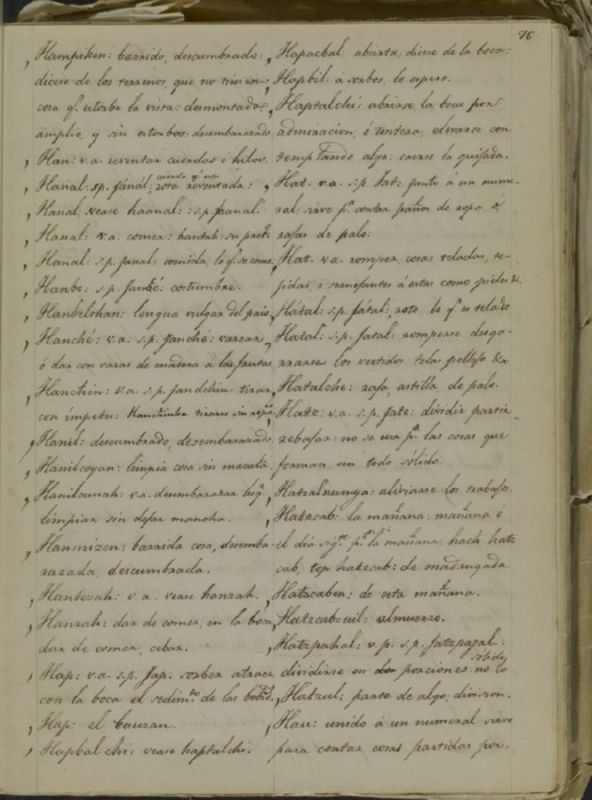 76
Hampiken: barrido, descumbrado:
dicese de los terrenos, que no tienen
cosa qe. estorbe la vista: desmontado,
amplio, y sin estorbos: desembarazado
Han: v.a. reventar cuerdas ó hilos.
cuerda qe. una
Hanal: s.p. janál: cosa reventada:
Hanal: vease haanal: s.p. jaanal.
Hanal: v.a. comer: hantab: su pret.
Hanal: s.p. janal: comida, lo qe. se come.
Hanbe: s.p. janbé: costumbre.
Hanbelthan: lengua vulgar del pais.
Hanché: v.a. s.p. janché: varear,
ó dar con varas de madera a las frutas.
Hanchin: v.a. s.p. jandchin: tirar,
con impetu: hanchinbe tirarse sin
Hanil: descumbrado, desembarazado.
Hanilcoyan: limpia cosa sin macula.
Hanilcunah: v.a. desembarazar lug.
limpiar sin dejar mancha.
Hanmizen: barrida cosa, desemba-
razada, descumbrada.
Hantezah: v.a. vease hanzah.
Hanzah: dar de comer, en la boca,
dar de comer, cebar.
Hap: v.a. s.p. Jap. sorber atraer
con la boca el sedimto. de las bebid.
Hap: el bauzan.
Hapbal chi: vease haptalchi.
Hapacbal: abierta, dicese de la boca:
Hapbil: a sorbos, lo espeso.
Haptalchi: abrirse la boca por
admiracion, ó tontera, elevarse con
templando algo: caerse la quijada.
Hat: v.a. s.p. Jat: junto á un nume-
ral: sirve pa. contar paños de ropa &
rajas de palo:
Hat. v.a. romper, cosas teladas, te-
jidas, i semejantes á estas como pieles &.
Hátal: s.p. játal: roto lo qe. es telado
Hatal: s.p. jatal: romperse desga-
rrarse los vestidos tela pellejo &a
Hatalche: raja, astilla de palo.
Hatz: v.a. s.p. jatz: dividir partir
rebajar: no se usa pa. las cosas que
forman un todo sólido.
Hatzalnumya: aliviarse los trabajos.
Hatzcab: la mañana. mañana ó
el dia sigte. pr. la mañana: hach hatz
cab, top hatzcab: de madrugada
Hatzcaben: de esta mañana.
Hatzcab-cuil: almuerzo.
Hatzpahal: v.p. s.p. jatzpajal:
sólido
dividirse en dos porciones: no lo
Hatzul: parte de algo, division.
Hau: unido á un numeral sirve
para contar cosas partidas por.